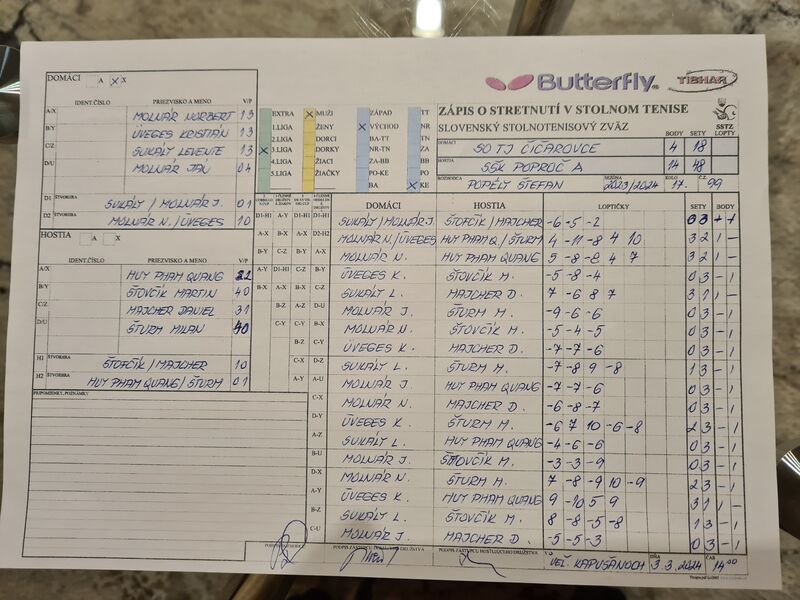 DOMÁCI A X
Butterfly
TIBHAR
IDENT.ČÍSLO PRIEZVISKO A MENO V/P
A/X MOLNÁR NORBERT 13
B/Y ÜVEGES KRISTIÁN 13
C/Z SUKÁLY LEVENTE 13
D/U MOLNÁR JÁN 04
D1 ŠTVORHRA SUKÁLY / MOLNÁR J. 01
D2 ŠTVORHRA MOLNÁR N. / ÜVEGES 10
HOSTIA A X
IDENT.ČÍSLO PRIEZVISKO A MENO V/P
A/X HUY PHAM QUANG 22
B/Y ŠTOVČÍK MARTIN 40
C/Z MAJCHER DANIEL 31
D/U ŠTURM MILAN 40
H1 ŠTVORHRA ŠTOFČÍK / MAJCHER 10
H2 ŠTVORHRA HUY PHAM QUANG / ŠTURM 01
PRIPOMIENKY, POZNÁMKY
EXTRA X MUŽI ZÁPAD TT
1.LIGA ŽENY X VÝCHOD NR
2.LIGA DORCI BA-TT TN
X 3.LIGA DORKY NR-TN ZA
4.LIGA ŽIACI ZA-BB BB
5.LIGA ŽIAČKY PO-KE PO
BA X KE
ZÁPIS O STRETNUTÍ V STOLNOM TENISE
SLOVENSKÝ STOLNOTENISOVÝ ZVÄZ
SSTZ
BODY SETY LOPTY
DOMÁCI SO TJ ČIČAROVCE 4 18
HOSTIA SŠK POPROČ A 14 48
ROZHODCA POPÉLY ŠTEFAN SEZÓNA 2023/2024 KOLO 17. Č.Z. 99
DOMÁCI HOSTIA LOPTIČKY SETY BODY
D1-H1 SUKÁLY / MOLNÁR J. ŠTOFČÍK / MAJCHER -6 -5 -2 03 + +
D2-H2 MOLNÁR N. / ÜVEGES HUY PHAM Q. / ŠTURM 4 -11 -8 4 10 32 1 -
A-X MOLNÁR N. HUY PHAM QUANG 5 -8 -8 4 7 32 1 -
B-Y ÜVEGES K. ŠTOVČÍK M. -5 -8 -4 03 - 1
C-Z SUKÁLY L. MAJCHER D. 7 -6 8 7 31 1 -
D-U MOLNÁR J. ŠTURM M. -9 -6 -6 03 - 1
A-Y MOLNÁR N. ŠTOVČÍK M. -5 -4 -5 03 - 1
B-Z ÜVEGES K. MAJCHER D. -7 -7 -6 03 - 1
C-U SUKÁLY L. ŠTURM M. -7 -8 9 -8 13 - 1
D-X MOLNÁR J. HUY PHAM QUANG -7 -7 -6 03 - 1
A-Z MOLNÁR N. MAJCHER D. -6 -8 -7 03 - 1
B-U ÜVEGES K. ŠTURM M. -6 7 10 -6 -8 23 - 1
C-X SUKÁLY L. HUY PHAM QUANG -4 -6 -6 03 - 1
D-Y MOLNÁR J. ŠTOVČÍK M. -3 -3 -9 03 - 1
A-U MOLNÁR N. ŠTURM M. 7 -8 -9 10 -9 23 - 1
B-X ÜVEGES K. HUY PHAM QUANG 9 -10 5 9 31 1 -
C-Y SUKÁLY L. ŠTOVČÍK M. 8 -8 -5 -8 13 - 1
D-Z MOLNÁR J. MAJCHER D. -5 -5 -3 03 - 1
PODPIS ROZHODCU PODPIS ZÁSTUPCU DOMÁCEHO DRUŽSTVA PODPIS ZÁSTUPCU HOSŤUJÚCEHO DRUŽSTVA VO VEĽ. KAPUŠANOCH DŇA 3.3.2024 ČAS 14.00